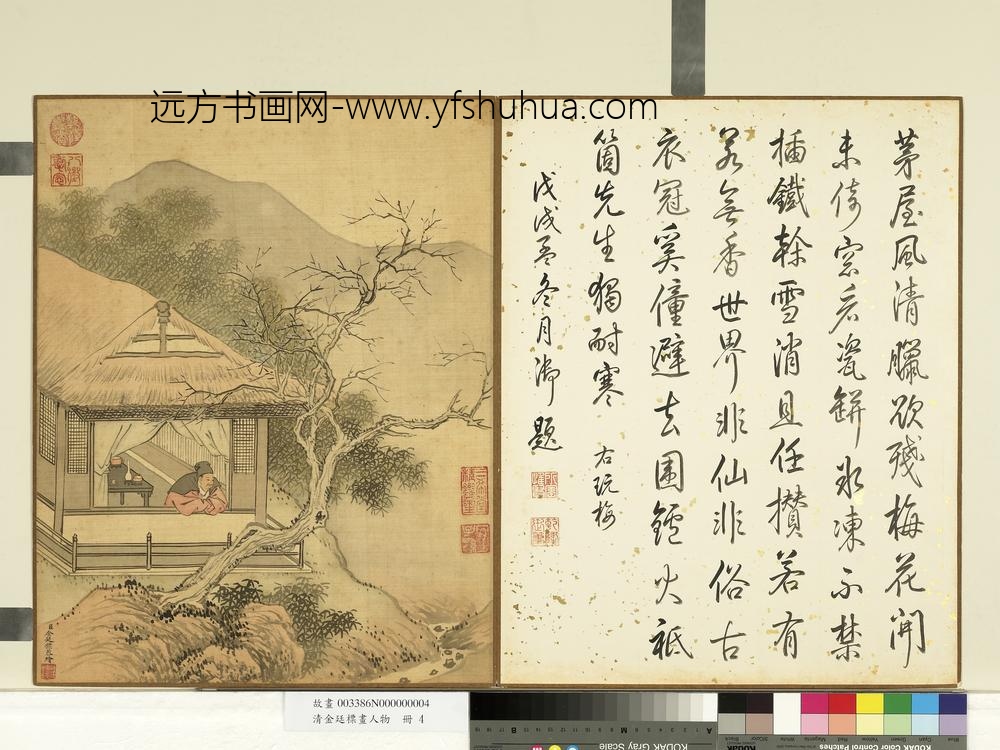 远方书画网-www.yfshuhua.com
茅屋風清臘欲殘梅花開
未倚窓看瓷缾氷凍不禁
插鐵幹雪消且任攢若有
若無香世界非仙非俗古
衣冠奚僮避去圍鑪火祗
箇先生獨耐寒 右玩梅
戊戌孟冬月御題
三希堂精鑑璽
宜子孫
臣金廷標恭繪
故畫 003386N000000004
清金廷標畫人物 冊 4